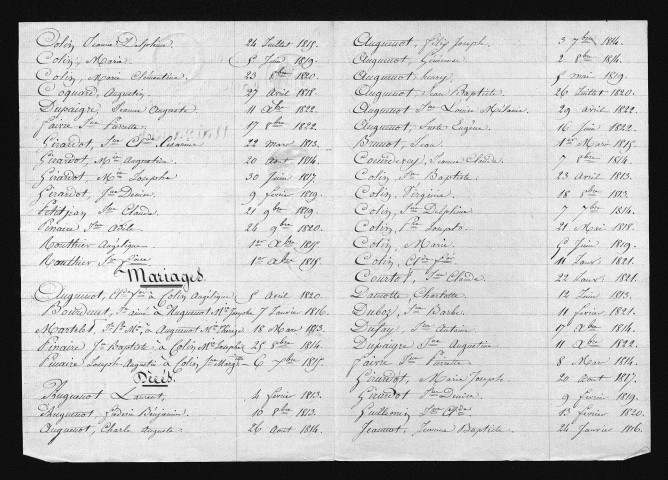 Colin Jeanne Delphine 24 Juillet 1815.
Colin, Marie 5 Juin 1819.
Colin, Marie Clémentine 23 8bre 1820.
Coquard, Augustin 27 avril 1818.
Dupaigre, Jeanne Auguste 11 Xbre 1822.
Faivre Jne Pierrette 17 8bre 1822.
Girardot, Jne Clde 22 mars 1813.
Girardot, Mie Augustine 20 aout 1814.
Girardot Mie Josephe 30 Juin 1817
Girardot, Jne Denise 9 fevrier 1819.
Petitjean Jne Claude 21 9bre 1819.
Pinaire Jne 24 9bre 1820.
Routhier Angélique 1er Xbre 1815
Routhier 1er Xbre 1818
Mariages
Auguenot, à Colin Angélique 5 Avril 1820.
à Auguenot Mie Josephe 7 Janvier 1816.
Martelet, à Auguenot Mie Thérèze 18 Mars 1813.
Pinaire Jn Baptiste à Colin Mie Josephe 25 8bre 1814.
Pinaire Joseph Auguste à Colin Jne 6 7bre 1815
Décès.
Auguenot Laurent, 4 fevrier 1813.
Auguenot, Benjamin 10 8bre 1813.
Auguenot, Charle Auguste 26 Aout 1814.
Auguenot, Félix Joseph. 3 7bre 1814.
Auguenot, 2 8bre 1814.
Auguenot 5 mai 1819.
Auguenot Jean Baptiste 26 Juillet 1820.
Auguenot Jne Louise Mélanie 29 avril 1822.
Auguenot, Juste Eugène 16 Juin 1822.
Brunot, Jean 1er Mars 1815.
Coeurdevey, Jeanne Claude 7 8bre 1814.
Colin, Jn Baptiste 23 Avril 1813.
Colin, Virginie 18 8bre 1813.
Colin, Jne Delphine 7 7bre 1814.
Colin, Josephe 21 Mai 1818.
Colin, Marie 5 Juin 1819.
Colin, 11 Janv. 1821.
Courtot, Jne Claude 22 Janv. 1821.
Charlotte 12 Juin 1813.
Duboz, Jne Barbe 11 fevrier 1821.
Dufay, Jn Antoine 17 Xbre 1814.
Dupaigre Jne Augustine 11 Xbre 1822
Faivre Jne Pierrette 8 Mars 1814
Girardot, Marie Josephe 20 Aout 1817.
Girardot Jne Denise 9 fevrier 1819.
Guillemin Jne Clde 13 fevrier 1820.
Jeannot, Jeanne Baptiste 24 Janvier 1816.